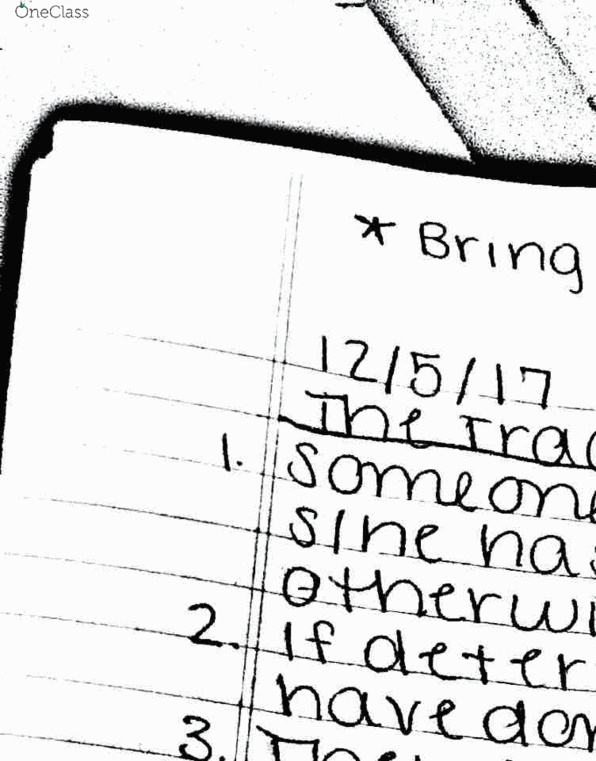 OneClass
* Bring
12/5/17
The Trad
1. Someone
sine has
otherwi
2. If deter
have don
3. The